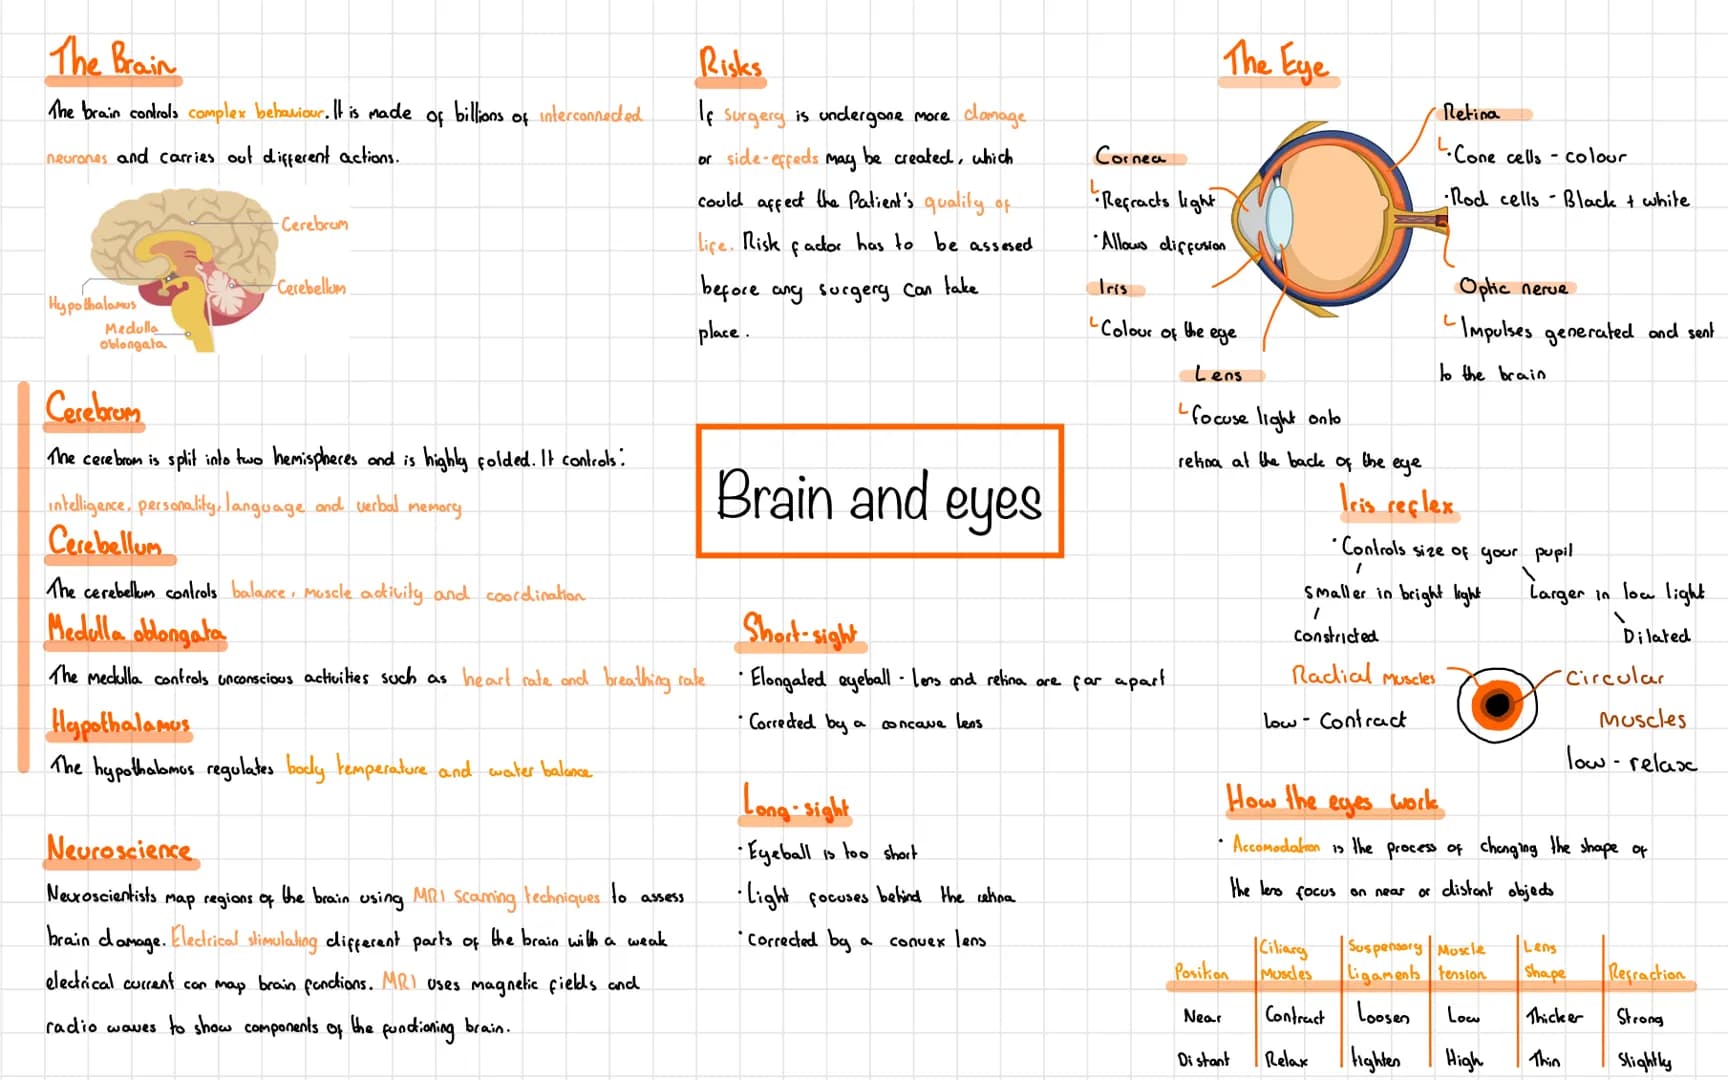 The Brain
The brain controls complex behaviour. It is made of billions of interconnected
neurones and carries out different actions.
Cerebrum
Cerebellum
Hypothalamus
Medulla
oblongata
Cerebrum
The cerebrum is split into two hemispheres and is highly folded. It controls:
intelligence, personality, language and verbal memory
Cerebellum
The cerebellum controls balance, muscle activity and coordination
Medulla oblongata
The medulla controls unconscious activities such as heart rate and breathing rate
Hypothalamus
The hypothalamus regulates body temperature and water balance
Neuroscience
Neuroscientists map regions of the brain using MRI scanning techniques to assess
brain damage. Electrical stimulating different parts of the brain with a weak
electrical current can map brain functions. MRI uses magnetic fields and
radio waves to show components of the functioning brain.
Risks
If surgery is undergone more damage
or side-effects may be created, which
could affect the Patient's quality of
life. Risk factor has to be assesed
before any surgery can take
place.
Brain and eyes
Short-sight
• Elongated eyeball - lens and retina are far apart
• Corrected by a concave lens
Long-sight
• Eyeball is too short
• Light focuses behind the retina
• corrected by a convex lens
The Eye
Cornea
• Refracts light
• Allows diffusion
Iris
Colour of the eye
Lens
focuse light onto
retina at the back of the eye
Retina
• Cone cells - colour
• Rod cells - Black + white
Optic nerve
Impulses generated and sent
to the brain
Iris reflex
• Controls size of your pupil
smaller in bright light
Larger in low light
constricted
Dilated
Radial muscles
low - contract
circular
muscles
low - relax
How the eyes work
• Accomodation is the process of changing the shape of
the lens focus on near or distant objects
Position | Ciliary Muscles | Suspensory ligaments | Muscle tension | Lens shape | Refraction
Near | Contract | Loosen | Low | Thicker | Strong
Distant | Relax | tighten | High | Thin | Slightly